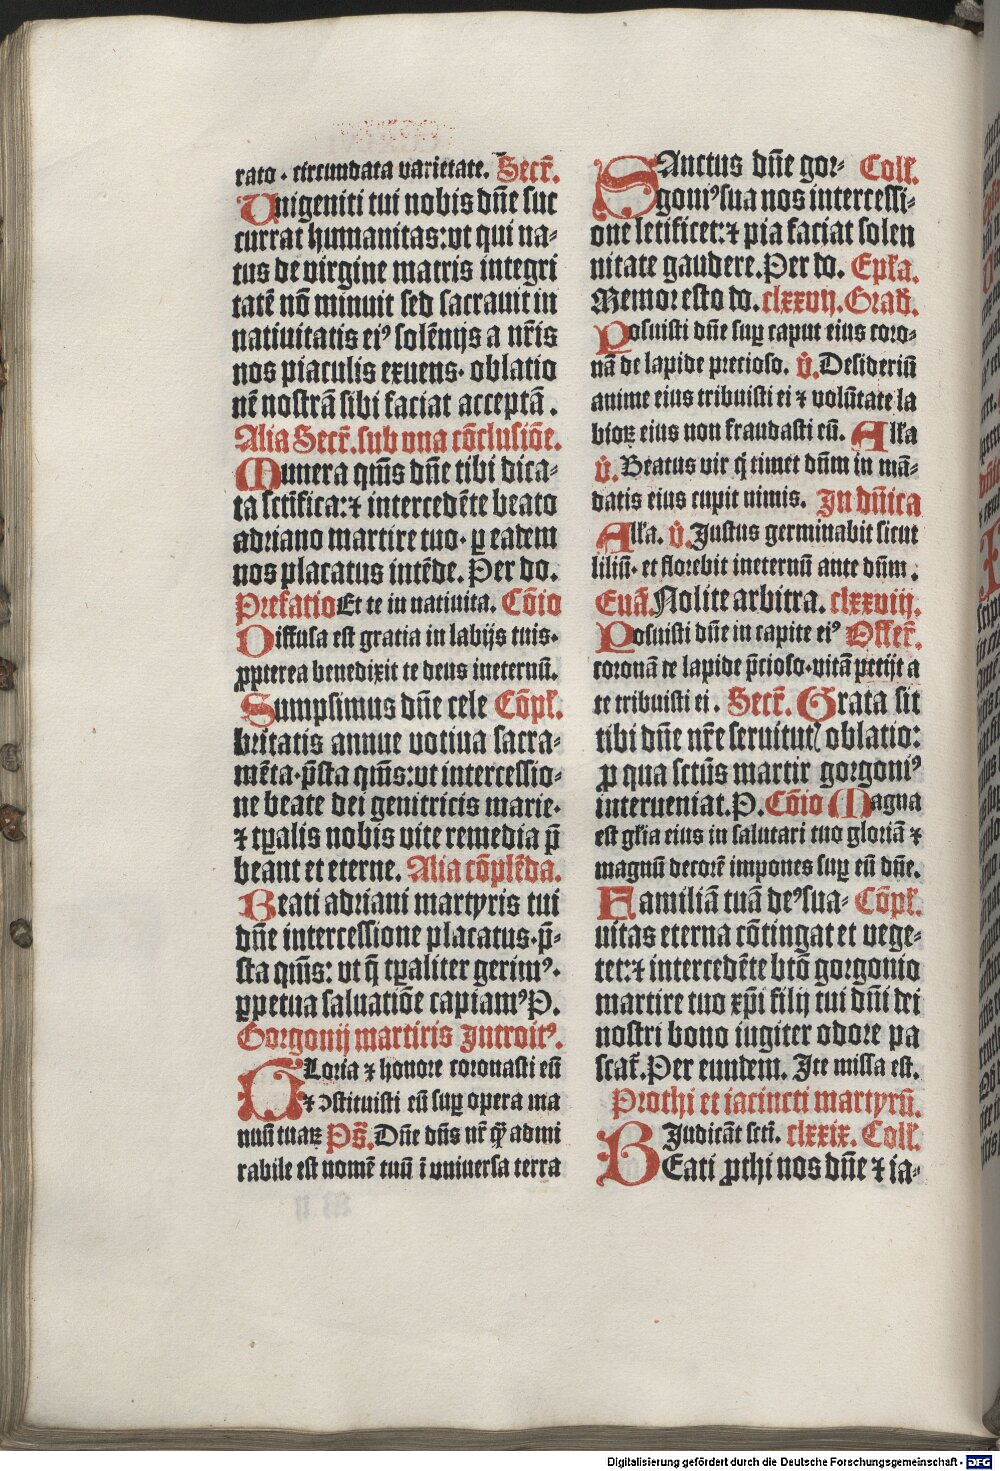 rato · circundata varietate. Secr̄.
Unigeniti tui nobis dn̄e suc
currat humanitas: vt qui na⸗
tus de virgine matris integri
tatē nō minuit sed sacrauit in
natiuitatis eiꝰ solēnijs a nr̄is
nos piaculis exuens· oblatio
nē nostrā sibi faciat acceptā.
Alia Secr̄. sub vna cōclusiōe.
Munera qm̄s dn̄e tibi dica⸗
ta sctīfica: ⁊ intercedēte beato
adriano martire tuo· ꝑ eadem
nos placatus intēde. Per do.
Prefatio Et te in natiuita. Cōio
Diffusa est gracia in labijs tuis·
ꝓpterea benedixit te deus ineternū.
Sumpsimus dn̄e cele Cōpl̄.
britatis annue votiua sacra⸗
mēta· p̄sta qm̄s: vt intercessio⸗
ne beate dei genitricis marie·
⁊ tꝑalis nobis vite remedia p̄
beant et eterne. Alia cōplēda.
Beati adriani martyris tui
dn̄e intercessione placatus· p̄⸗
sta qm̄s: vt q̄ tꝑaliter gerimꝰ·
ꝑpetua saluatiōe capiamꝰ P.
Gorgonij martiris Introitꝰ.
GLoria ⁊ honore coronasti eū
⁊ ↄstituisti eū suꝑ opera ma
nuū tuaꝝ Ps̄. Dn̄e dn̄s nr̄ q̄ admi
rabile est nomē tuū ī vniuersa terra
SAnctus dn̄e gor⸗ Coll̄.
goniꝰ sua nos intercessi⸗
one letificet: ⁊ pia faciat solen
nitate gaudere. Per do. Epl̄a.
Memor esto do. clxxvij. Grad̄.
Posuisti dn̄e suꝑ caput eius coro⸗
nā de lapide precioso. v̊. Desideriū
anime eius tribuisti ei ⁊ volūtate la
bioꝝ eius non fraudasti eū. All̄a
v̊. Beatus vir q̄ timet dn̄m in mā⸗
datis eius cupit nimis. In dn̄ica
All̄a. v̊. Justus germinabit sicut
liliū· et florebit ineternū ante dn̄m.
Euā. Nolite arbitra. clxxviij.
Posuisti dn̄e in capite eiꝰ Offer̄.
coronā de lapide p̄cioso· vitā petijt a
te tribuisti ei. Secr̄. Grata sit
tibi dn̄e nr̄e seruitut( oblatio:
ꝓ qua sctūs martir gorgoniꝰ
interueniat. P. Cōio Magna
est gl̄ia eius in salutari tuo gloriā ⁊
magnū decorē impones suꝑ eū dn̄e.
Familiā tuā deꝰ sua⸗ Cōpl̄.
uitas eterna cōtingat et vege⸗
tet: ⁊ intercedēte btō gorgonio
martire tuo xp̄i filij tui dn̄i dei
nostri bono iugiter odore pa
scat̄. Per eundem. Ite missa est.
Prothi et iacincti martyrū.
Judicāt sct̄i. clxxix. Coll̄.
BEati ꝓthi nos dn̄e ⁊ ia⸗
Digitalisierung gefördert durch die Deutsche Forschungsgemeinschaft - DFG